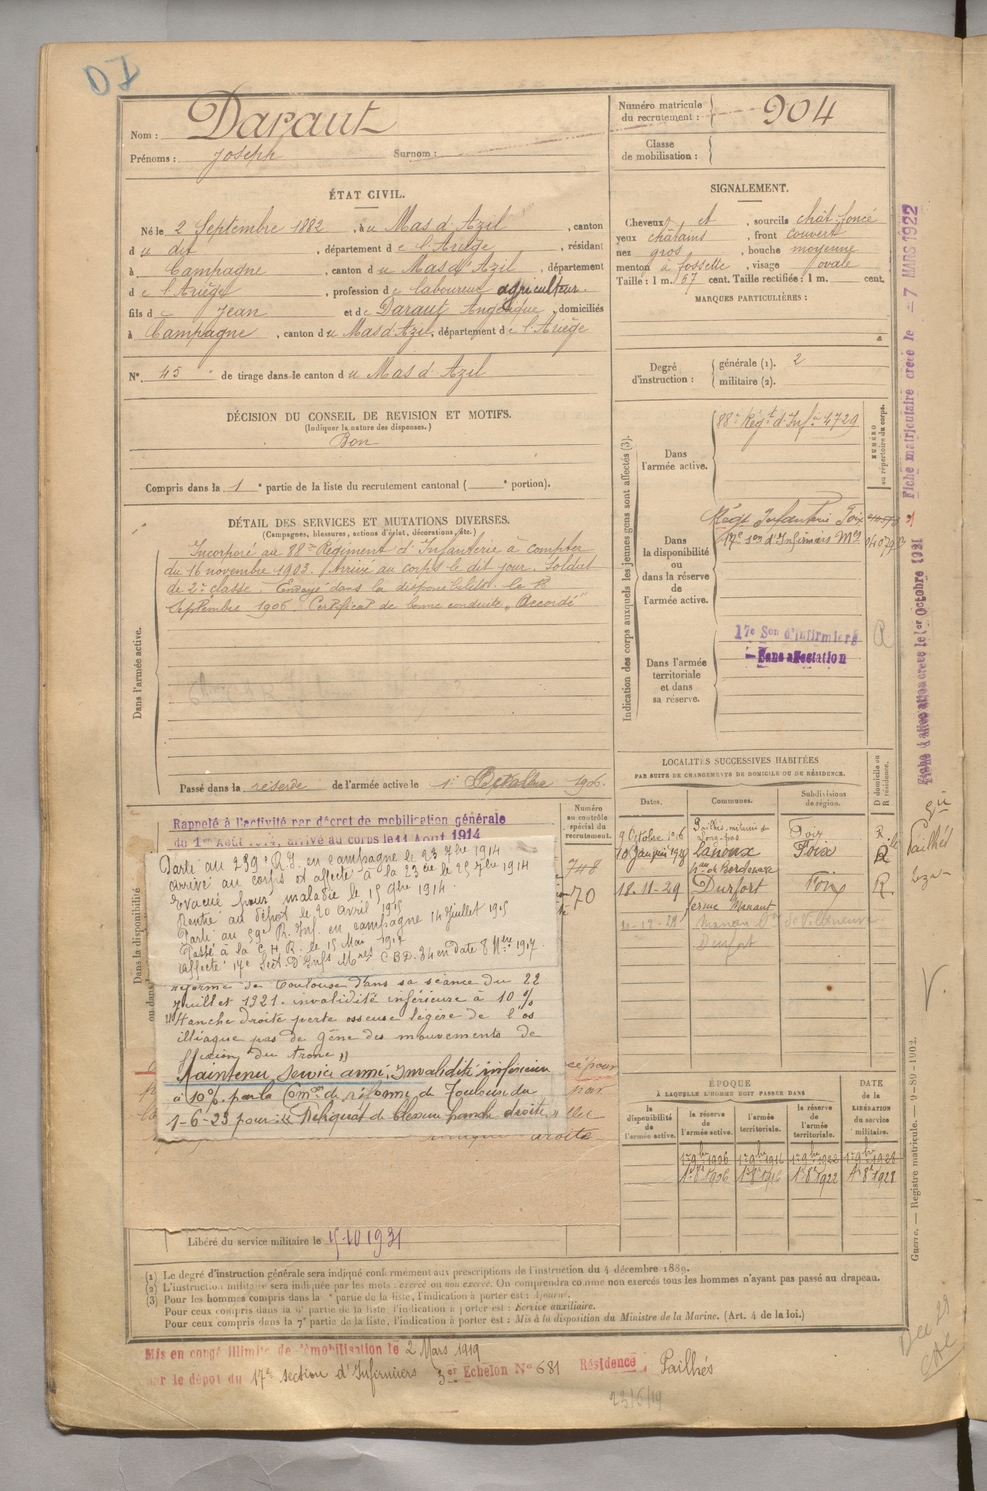 Nom : Daraut
Prénoms : Joseph Surnom :
Numéro matricule du recrutement : 904
Classe de mobilisation :
ÉTAT CIVIL.
Né le 2 Septembre 1882, à u Mas d'Azil, canton
d u dit, département d e l'Ariège, résidant
à Campagne, canton d u Mas d'Azil, département
d e l'Ariège, profession d e laboureur agriculteur.
fils d e Jean et d e Daraut Angélique, domiciliés
à Campagne, canton d u Mas d'Azil, département d e l'Ariège
N° 45 de tirage dans le canton d u Mas d'Azil
DÉCISION DU CONSEIL DE REVISION ET MOTIFS.
(Indiquer la nature des dispenses.)
Bon
Compris dans la 1e partie de la liste du recrutement cantonal ( e portion).
DÉTAIL DES SERVICES ET MUTATIONS DIVERSES.
(Campagnes, blessures, actions d'éclat, décorations, etc.)
Dans l'armée active.
Incorporé au 88e Régiment d'Infanterie à compter
du 16 novembre 1903. Arrivé au corps le dit jour. Soldat
de 2e classe. Envoyé dans la disponibilité le 18
Septembre 1906. Certificat de bonne conduite "Accordé"
Passé dans la réserve de l'armée active le 1er Octobre 1906.
Numéro au contrôle spécial du recrutement.
748
70
Dans la disponibilité
Rappelé à l'activité par décret de mobilisation générale
du 1er Août 1914, arrivé au corps le 11 Août 1914
Parti au 259e R.I. en campagne le 23 7bre 1914
arrivé au corps et affecté à la 23e Cie le 25 7bre 1914
Evacué pour maladie le 15 9bre 1914.
Rentré au dépôt le 20 avril 1915
Parti au 59e R. Inf. en campagne 14 juillet 1915
Passé à la C.H.R. le 15 Mai 1917
affecté 17e Sect. d'Infs Mres C.B.D. 34 en date 8 9bre 1917.
réforme de Toulouse dans sa séance du 22
juillet 1921. invalidité inférieure à 10 %
"Hanche droite perte osseuse légère de l'os
illiaque pas de gêne des mouvements de
flexion du tronc"
Maintenu service armé; Invalidité inférieure
à 10% par la Comon de réforme de Toulouse du
1-6-23 pour: Reliquat de blessure hanche droite
droite
Libéré du service militaire le 15-10 1931
SIGNALEMENT.
Cheveux et, sourcils chât. foncé
yeux châtains, front couvert
nez gros, bouche moyenne
menton à fossette, visage ovale
Taille : 1 m. 67 cent. Taille rectifiée : 1 m. cent.
MARQUES PARTICULIÈRES :
Degré d'instruction : générale (1). 2
militaire (2).
Indication des corps auxquels les jeunes gens sont affectés (3).
NUMÉRO au répertoire du corps.
Dans l'armée active.
88e Régt d'Infie 4729
Dans la disponibilité ou dans la réserve de l'armée active.
Régt Infanterie Foix
17e son d'Infirmiers Mres
Dans l'armée territoriale et dans sa réserve.
17e Son d'Infirmiers
Sans affectation
R
LOCALITÉS SUCCESSIVES HABITÉES
PAR SUITE DE CHANGEMENTS DE DOMICILE OU DE RÉSIDENCE.
Dates. Communes. Subdivisions de région. D domicile ou R résidence.
Foix R.
Lanoux Foix R
18-11-29 Durfort Foix R.
ferme Manaut
Durfort
ÉPOQUE
À LAQUELLE L'HOMME DOIT PASSER DANS
la disponibilité de l'armée active. la réserve de l'armée active. l'armée territoriale. la réserve de l'armée territoriale. DATE de la LIBÉRATION du service militaire.
1er 9bre 1906 1er 9bre 1916 1er 9bre 1922 1er 9bre 1928
1er 8bre 1906 1er 8bre 1916 1er 8bre 1922 1er 8bre 1928
(1) Le degré d'instruction générale sera indiqué conformément aux prescriptions de l'instruction du 4 décembre 1889.
(2) L'instruction militaire sera indiquée par les mots : exercé ou non exercé. On comprendra comme non exercés tous les hommes n'ayant pas passé au drapeau.
(3) Pour les hommes compris dans la 1e partie de la liste, l'indication à porter est : Ajourné.
Pour ceux compris dans la 5e partie de la liste, l'indication à porter est : Service auxiliaire.
Pour ceux compris dans la 7e partie de la liste, l'indication à porter est : Mis à la disposition du Ministre de la Marine. (Art. 4 de la loi.)
Mis en congé illimité de démobilisation le 2 Mars 1919
par le dépôt du 17e section d'Infirmiers 3er Echelon N° 681 Résidence Pailhés
23/6/19
Fiche matriculaire créée le -7 MARS 1922
Fiche d'affectation créée le 1er Octobre 1921
Pailhés
Guerre. — Registre matricule. — 9-89-1902.